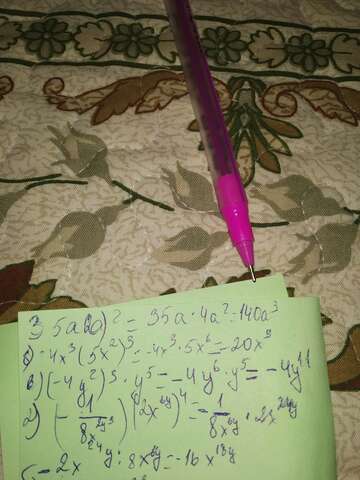 35a(2a)² = 35a · 4a² = 140a³
б) -4x³(5x²)³ = -4x³ · 5x⁶ = -20x⁹
в) (-4y²)³ · y⁵ = -4y⁶ · y⁵ = -4y¹¹
г) (-1/8x²y³)(2x⁶y)⁴ = -1/8x⁶y · 2x²⁴y
-2x²⁴y : 8x⁶y = -16x¹⁸y